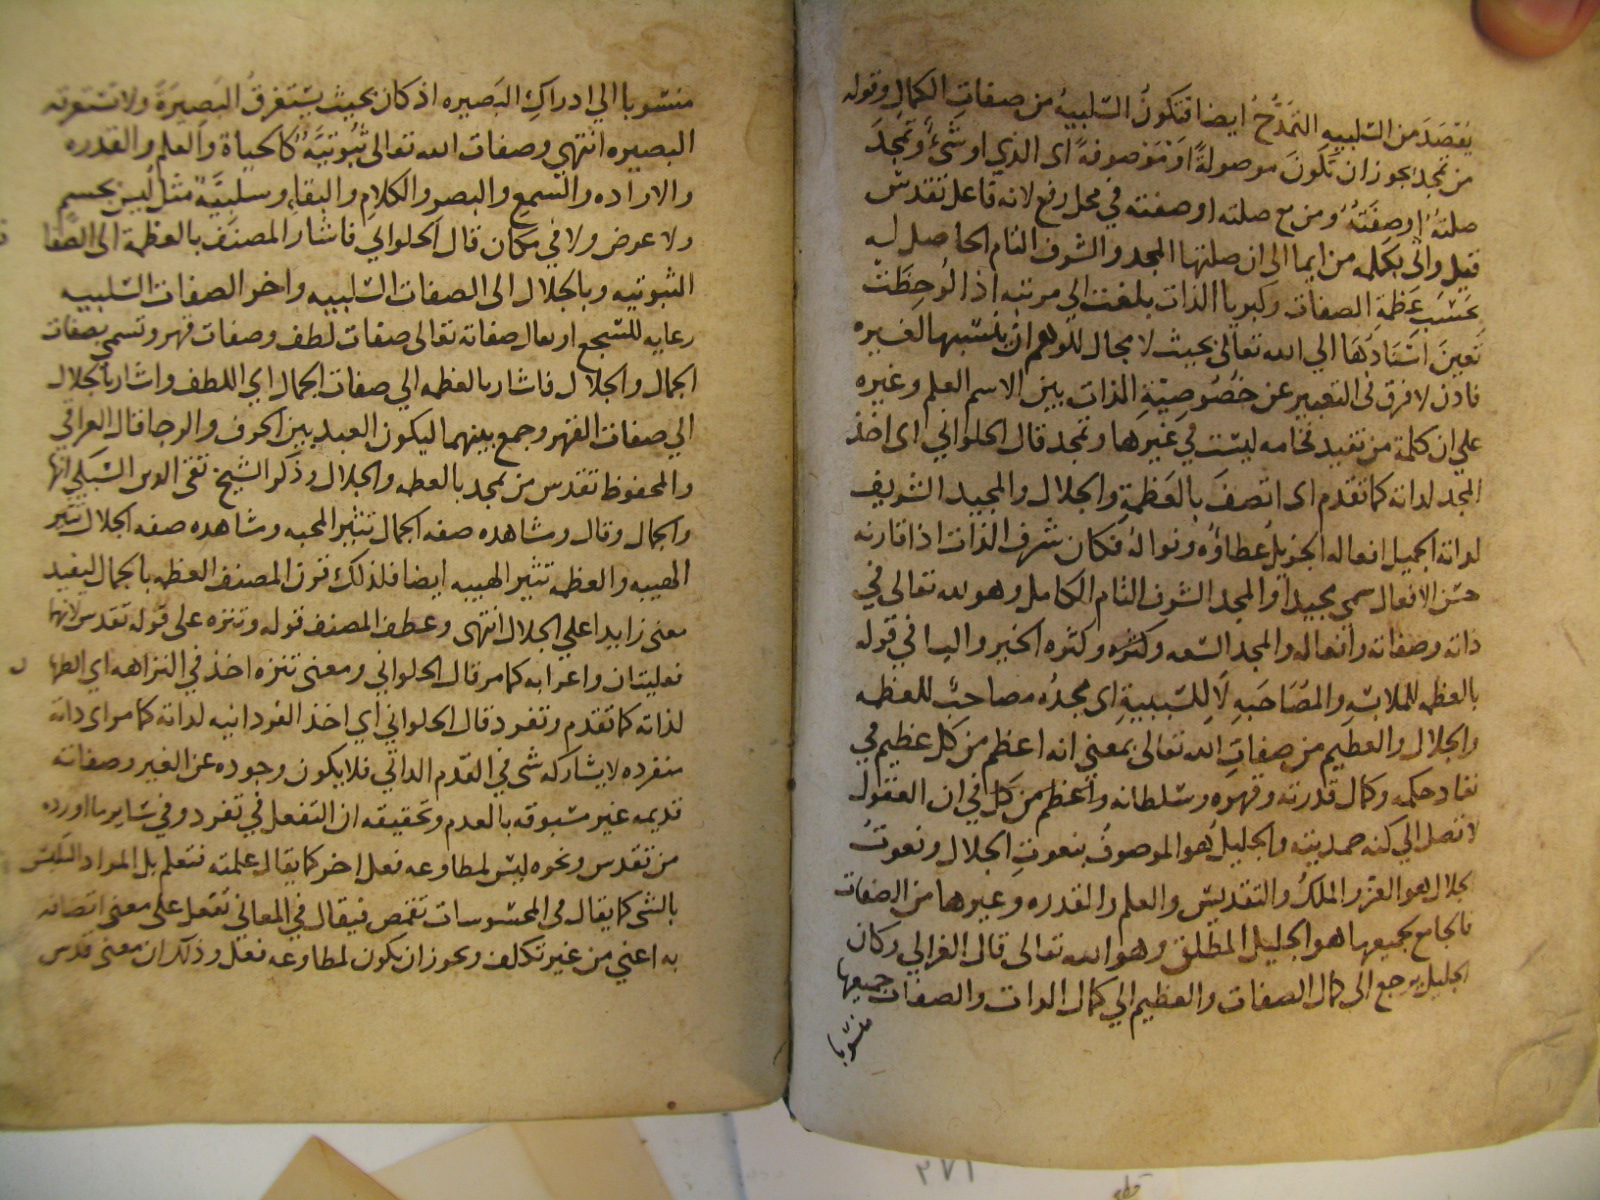 يقصد من السلبيه التمدح ايضا فتكون السلبيه من صفات الكمال وقوله
من تمجد يجوز ان تكون موصولة او موصوفة اى الذي او شئ وتمجد
صلته او صفته ومن مع صلته او صفته في محل رفع لانه فاعل تقدس
قيل واتى بكلمه من ايما الى ان صلتها المجد والشرف التام الحاصل له
بحسب عظمة الصفات وكبريا الذات بلغت الي مرتبه اذا لوحظت
تعين اسنادها الي الله تعالى بحيث لا مجال للوهم ان ينسبها لغيره
فاذن لا فرق في التعبير عن خصوصية الذات بين الاسم العلم وغيره
علي ان كلمة من تفيد فخامه ليست في غيرها وتمجد قال الحلواني اى اخذ
المجد لذاته كما تقدم اى اتصف بالعظمة والجلال والمجيد الشريف
لذاته الجميل افعاله الجزيل عطاؤه ونواله فكان شرف الذات اذا قارنه
حسن الافعال سمي مجيدا والمجد الشرف التام الكامل وهو لله تعالى في
ذاته وصفاته وافعاله والمجد السعه وكثره وكثره الخير والبا في قوله
بالعظمه للملابسه والمصاحبه لا للسببية اى مجده مصاحب للعظمه
والجلال والعظيم من صفات الله تعالى بمعني انه اعظم من كل عظيم في
نفاد حكمه وكمال قدرته وقهره وسلطانه واعظم من كل في ان العقول
لا تصل الي كنه صمديته والجليل هو الموصوف بنعوت الجلال ونعوت
الجلال هو العز والملك والتقديس والعلم والقدره وغيرها من الصفات
فالجامع لجميعها هو الجليل المطلق وهو الله تعالى قال الغزالي وكان
الجليل يرجع الى كمال الصفات والعظيم الي كمال الذات والصفات جميعها
منسوبا
منسوبا الي ادراك البصيره اذ كان بحيث يستغرق البصيرة ولا تستغرقه
البصيره انتهي وصفات الله تعالى ثبوتية كالحياة والعلم والقدره
والاراده والسمع والبصر والكلام والبقاء وسلبية مثل ليس بجسم
ولا عرض ولا في مكان قال الحلواني فاشار المصنف بالعظمة الى الصفا
الثبوتيه وبالجلال الى الصفات السلبيه واخر الصفات السلبيه
رعايه للسجع او يقال صفاته تعالى صفات لطف وصفات قهر وتسمي بصفات
الجمال والجلال فاشار بالعظمه الي صفات الجمال اي اللطف واشار بالجلال
الي صفات القهر وجمع بينهما ليكون العبد بين الخوف والرجا قال العراقي
والمحفوظ تقدس من تمجد بالعظمه والجلال وذكر الشيخ تقي الدين الشبلي انها
والجمال وقال ومشاهده صفه الجمال تثير المحبه ومشاهده صفه الجلال تثير
الهيبه والعظمه تثير الهيبه ايضا فلذلك قرن المصنف العظمه بالجمال ليفيد
معنى زايدا علي الجلال انتهى وعطف المصنف قوله وتنزه على قوله تقدس لانهما
فعليتان واعرابه كما مر قال الحلواني ومعنى تنزه اخذ في النزاهه اي الطها
لذاته كما تقدم وتفرد قال الحلواني أي اخذ الفردانيه لذاته كما مر اى ذاته
منفرده لا يشاركه شى في القدم الذاتي فلا يكون وجوده عن الغير وصفاته
قديمه غير مسبوقه بالعدم وتحقيقه ان التفعل في تفرد وفي ساير ما اورده
من تقدس ونحوه ليس لمطاوعه فعل اخر كما يقال علمته فتعلم بل المراد التلبس
بالشى كما يقال في المحسوسات تقمص فيقال في المعاني تفعل على معنى اتصافه
به اعني من غير تكلف ويجوز ان يكون لمطاوعه فعل وذلك ان معنى قدس
٢٧١